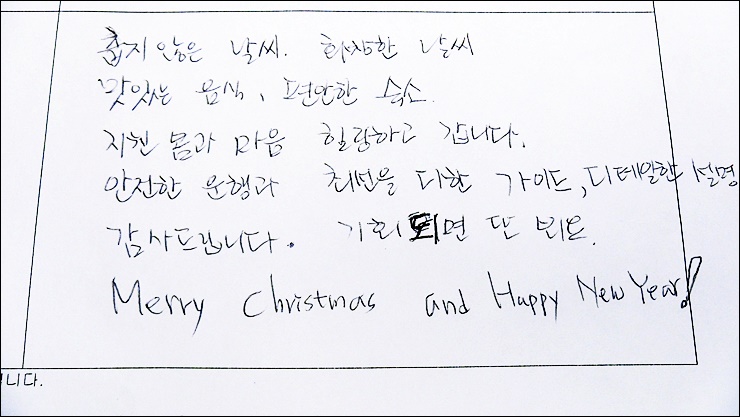 춥지 않은 날씨. 화창한 날씨
맛있는 음식, 편안한 숙소.
지친 몸과 마음 힐링하고 갑니다.
안전한 운행과 최선을 다한 가이드, 디테일한 설명
감사드립니다. 기회 되면 또 뵈요.
Merry Christmas and Happy New Year!
니다.